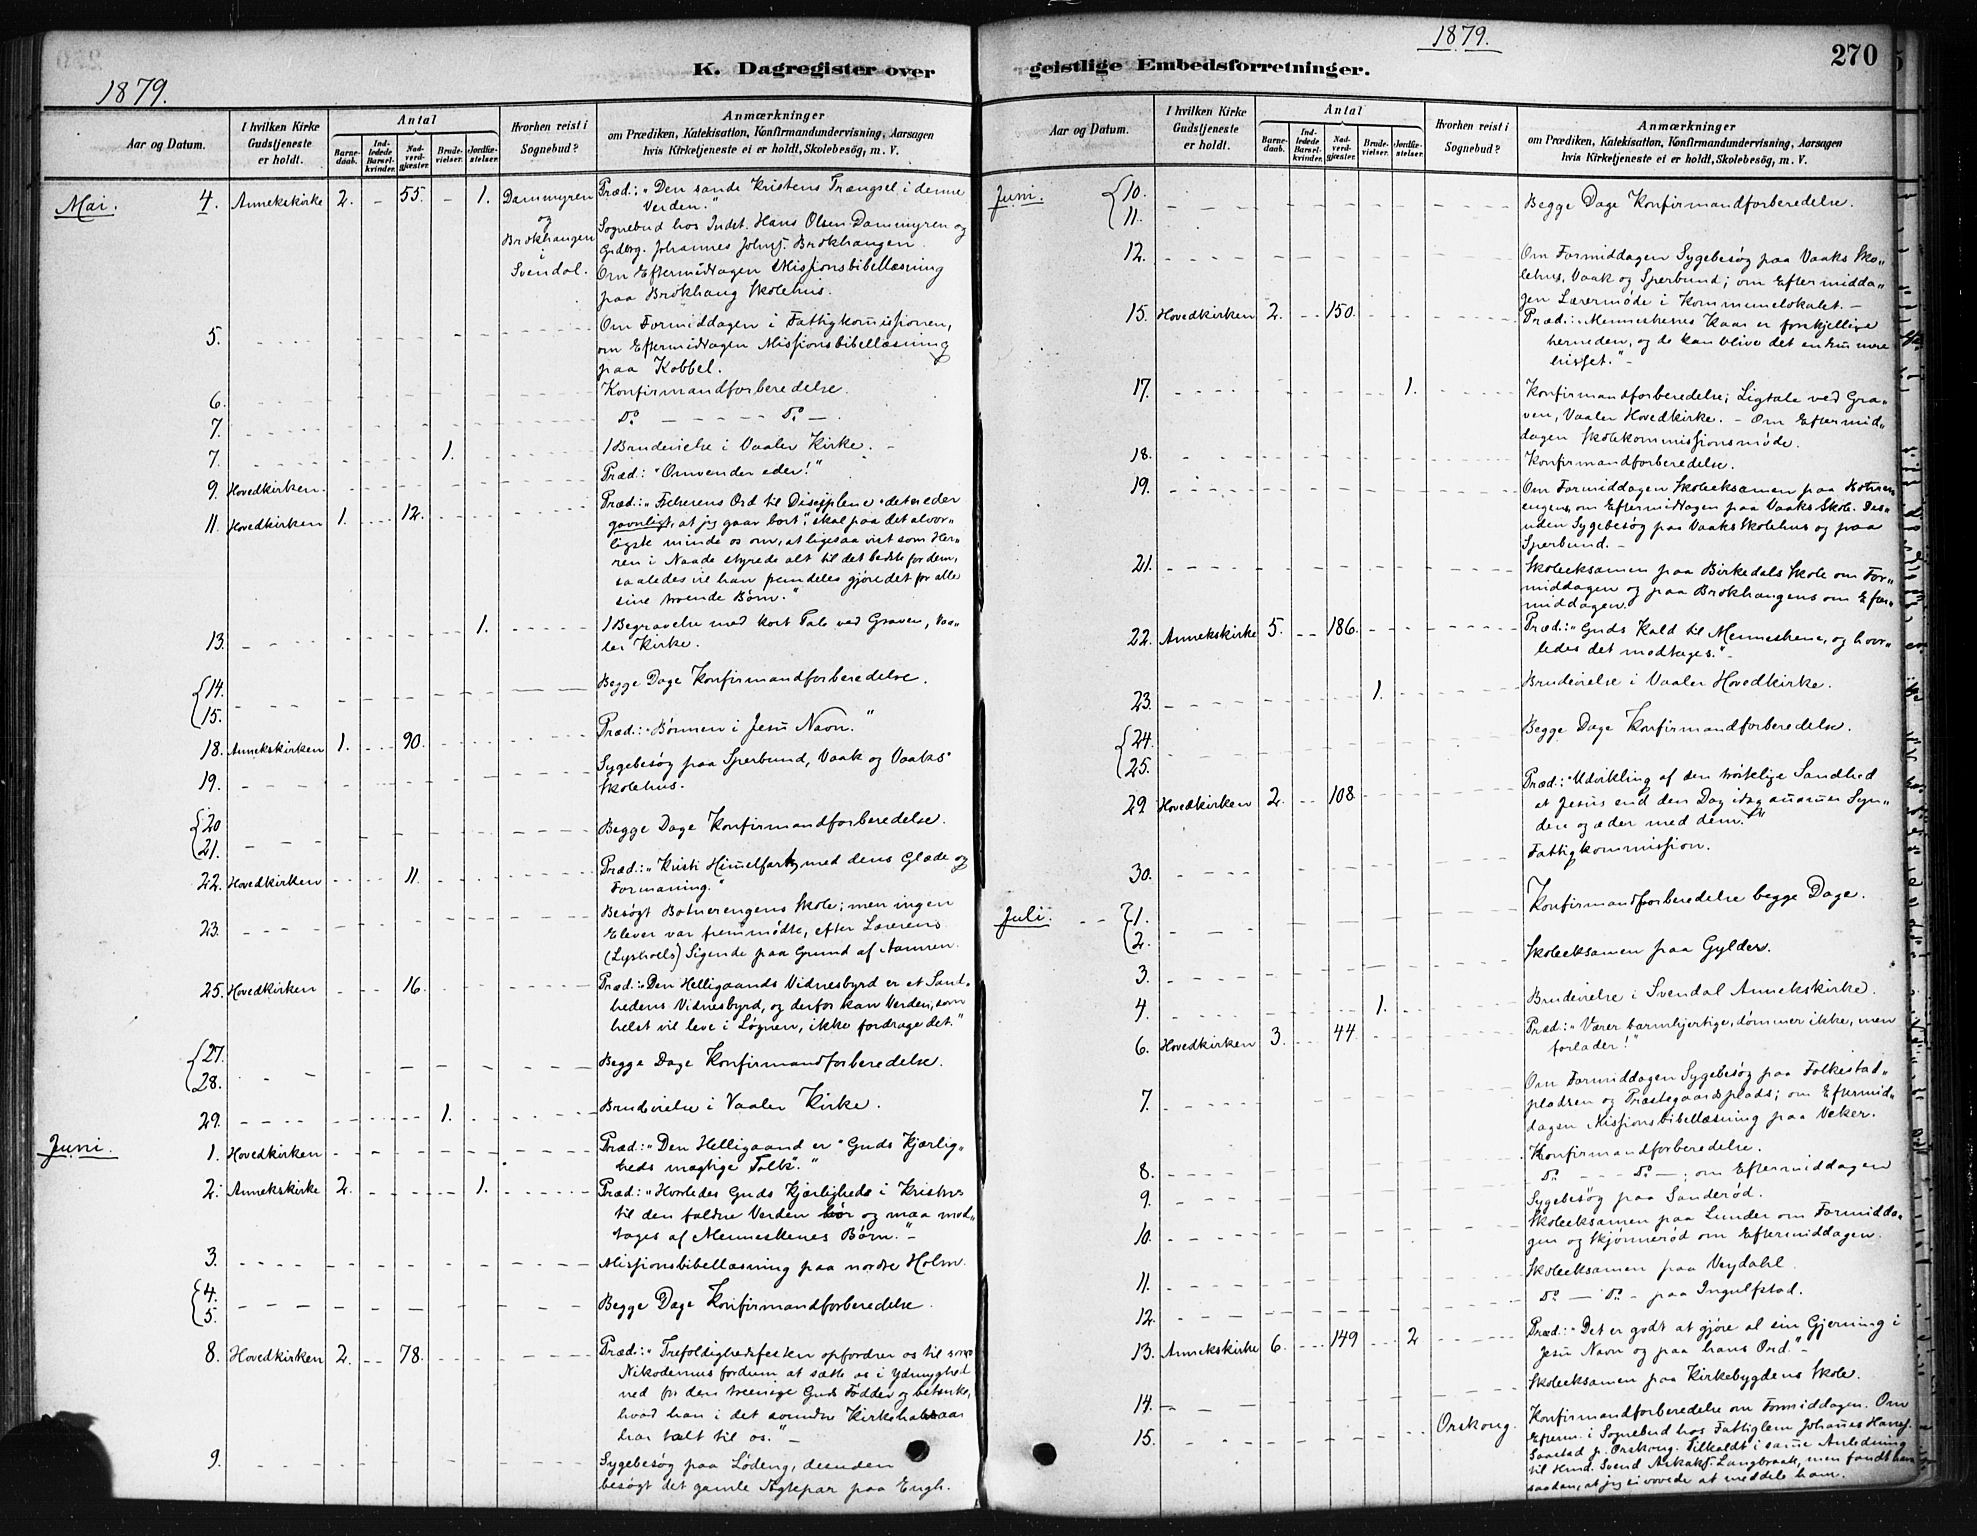 1879.
K. Dagregister over
Aar og Datum.
I hvilken Kirke Gudstjeneste er holdt.
Antal
Barnedaab.
Indledede Barselkvinder.
Nadverdgjæster.
Brudevielser.
Jordfæstelser.
Hvorhen reist i Sognebud?
Anmærkninger
om Prædiken, Katekisation, Konfirmandundervisning, Aarsagen
hvis Kirketjeneste ei er holdt, Skolebesøg, m. V.
Mai. 4. Annekskirke 2. – 55. – 1. Dammyren og Brokhangen i Svendal. Præd.: "Den sande Kristens Trængsel i denne
Verden."
Sognebud hos Indst. Hans Olsen Dammyren og
Grdbrg. Johannes Johns. Brokhangen.
Om Eftermiddagen Missionsbibellæsning
paa Brokhang Skolehus.
5. Om Formiddagen i Fattigkommissionen,
om Eftermiddagen Missionsbibellæsning
paa Kobbel.
6. Konfirmandforberedelse.
7. Do – – – – – Do –.
7. 1. 1 Brudevielse i Vaaler Kirke. –
9. Hovedkirken. Præd.: "Omvender eder!"
11. Hovedkirken 1. 12. Præd.: "Frelserens Ord til Disciplene "det er eder
gavnligt, at jeg gaar bort", skal paa det alvor-
ligste minde os om, at ligesaa vist som Her-
ren i Naade styrede alt til det bedste for dem,
saaledes vil han fremdeles gjøre det for alle
sine troende Børn."
13. 1. 1 Begravelse med kort Tale ved Graven, Vaa-
ler Kirke.
14.
15. Begge Dage Konfirmandforberedelse.
18. Annekskirken 1. 90. Præd.: "Bønnen i Jesu Navn."
19. Sygebesøg paa Sperbund, Vaak og Vaaks
Skolehus.
20
21. Begge Dage Konfirmandforberedelse.
22. Hovedkirken 11. Præd.: "Kristi Himmelfart, med dens Glæde og
Formaning."
23. Besøgt Botnerengens Skole; men ingen
Elever var fremmødte, efter Lærerens
(Lysholls) Sigende paa Grund af Aannen.
25. Hovedkirken 16. Præd.: "Den Helligaands Vidnesbyrd er et Sand-
hedens Vidnesbyrd, og derfor kan Verden, som
helst vil leve i Løgnen, ikke fordrage det."
27.
28. Begge Dage Konfirmandforberedelse.
29. 1. Brudevielse i Vaaler Kirke.
Juni. 1. Hovedkirken Præd.: "Den Helligaand er "Guds Kjærlig-
heds mægtige Tolk"."
2. Annekskirke 2. 1. Præd.: "Hvorledes Guds Kjærligheds i Kristus
til den faldne Verden bør og maa mod-
tages af Menneskenes Børn." –
3. Missionsbibellæsning paa nordre Holm.
4.
5. Begge Dage Konfirmandforberedelse.
8. Hovedkirken 2. 78. Præd.: "Trefoldighedsfesten opfordrer os til som
Nikodemus fordum at sætte os i Ydmyghed
ned for den treenige Guds Fødder og betænke,
hvad han i det svundne Kirkehalvaar
har talt til os." –
9. Sygebesøg paa Lødeng, desuden
besøgt det gamle Ægtepar paa Engh.
1879.
geistlige Embedsforretninger.
270
Aar og Datum.
I hvilken Kirke Gudstjeneste er holdt.
Antal
Barnedaab.
Indledede Barselkvinder.
Nadverdgjæster.
Brudevielser.
Jordfæstelser.
Hvorhen reist i Sognebud?
Anmærkninger
om Prædiken, Katekisation, Konfirmandundervisning, Aarsagen
hvis Kirketjeneste ei er holdt, Skolebesøg, m. V.
Juni. 10.
11. Begge Dage Konfirmandforberedelse.
12. Om Formiddagen Sygebesøg paa Vaaks Sko-
lehus, Vaak og Sperbund; om Eftermidda-
gen Lærermøde i Kommunelokalet. –
15. Hovedkirken 2. 150. Præd.: "Menneskenes Kaar er forskjellige
herneden, og de kan blive det endnu mere
hisset." –
17. 1. Konfirmandforberedelse; Ligtale ved Gra-
ven, Vaaler Hovedkirke. – Om Eftermid-
dagen Skolekommissionsmøde.
18. Konfirmandforberedelse.
19. Om Formiddagen Skoleeksamen paa Botner-
engens, om Eftermiddagen paa Vaaks Skole. Des-
uden Sygebesøg paa Vaaks Skolehus og paa
Sperbund. –
21. Skoleeksamen paa Birkedals Skole om For-
middagen og paa Brokhangens om Efter-
middagen.
22. Annekskirke 5. 186. Præd.: "Guds Kald til Menneskene, og hvor-
ledes det modtages." –
23. 1. Brudevielse i Vaaler Hovedkirke.
24.
25. Begge Dage Konfirmandforberedelse.
29 Hovedkirken 2. 108. Præd.: "Udvikling af den trøstelige Sandhed
at Jesus end den Dag idag annammer Syn-
dere og æder med dem."
30. Fattigkommission.
Juli. 1.
2. Konfirmandforberedelse begge Dage.
3. Skoleeksamen paa Gylder.
4. 1. Brudevielse i Svendal Annekskirke.
6. Hovedkirken 3. 44. Præd.: "Værer barmhjertige, dømmer ikke, men
forlader!"
7. Om Formiddagen Sygebesøg paa Folkestad-
pladsen og Præstegaardsplads; om Eftermid-
dagen Missionsbibellæsning paa Veker.
8. Konfirmandforberedelse.
9. Do – – Do –; om Eftermiddagen
Sygebesøg paa Sanderød.
10. Skoleeksamen paa Lunder om Formidda-
gen og Skjønnerød om Eftermiddagen.
11. Skoleeksamen paa Veydahl.
12. Do – Do – paa Ingulfstad.
13. Annekskirke 6. 149 2 Præd.: "Det er godt at gjøre al sin Gjerning i
Jesu Navn og paa hans Ord." –
14. Skoleeksamen paa Kirkebygdens Skole.
15. Orskoug. Konfirmandforberedelse om Formiddagen. Om
Efterm. i Sognebud hos Fattiglem Johannes Hans.
Saastad p. Orskoug. Tilkaldt i samme Anledning
til Kmd. Svend Aslaks. Langbraak, men fandt ham
saadan, at jeg ei vovede at meddele ham.